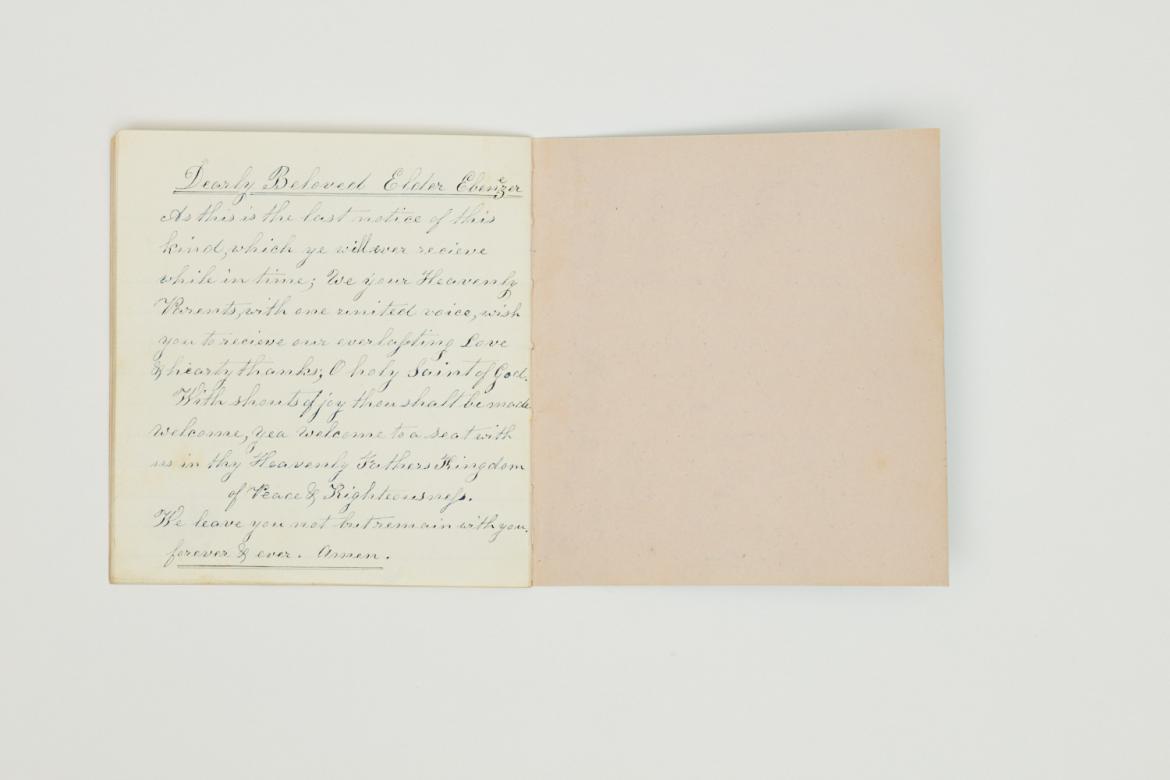 Dearly Beloved Elder Ebenezer
As this is the last notice of this
kind, which ye will ever recieve
while in time; We your Heavenly
Parents, with one united voice, wish
you to recieve our everlasting Love
& hearty thanks; O holy Saint of God.
With shouts of joy thou shalt be made
welcome, yea welcome to a seat with
us in thy Heavenly Fathers Kingdom
of Peace & Righteousness.
We leave you not but remain with you,
forever & ever. Amen.